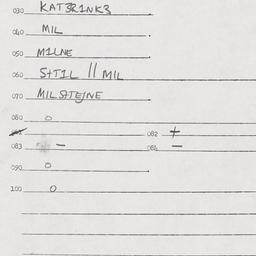 030 KAT3R1NK3
040 MIL
050 M1LNE
060 S+T1L // MIL
070 MILSTEJNE
080 0
082 +
083 -
084 -
090 0
100 0